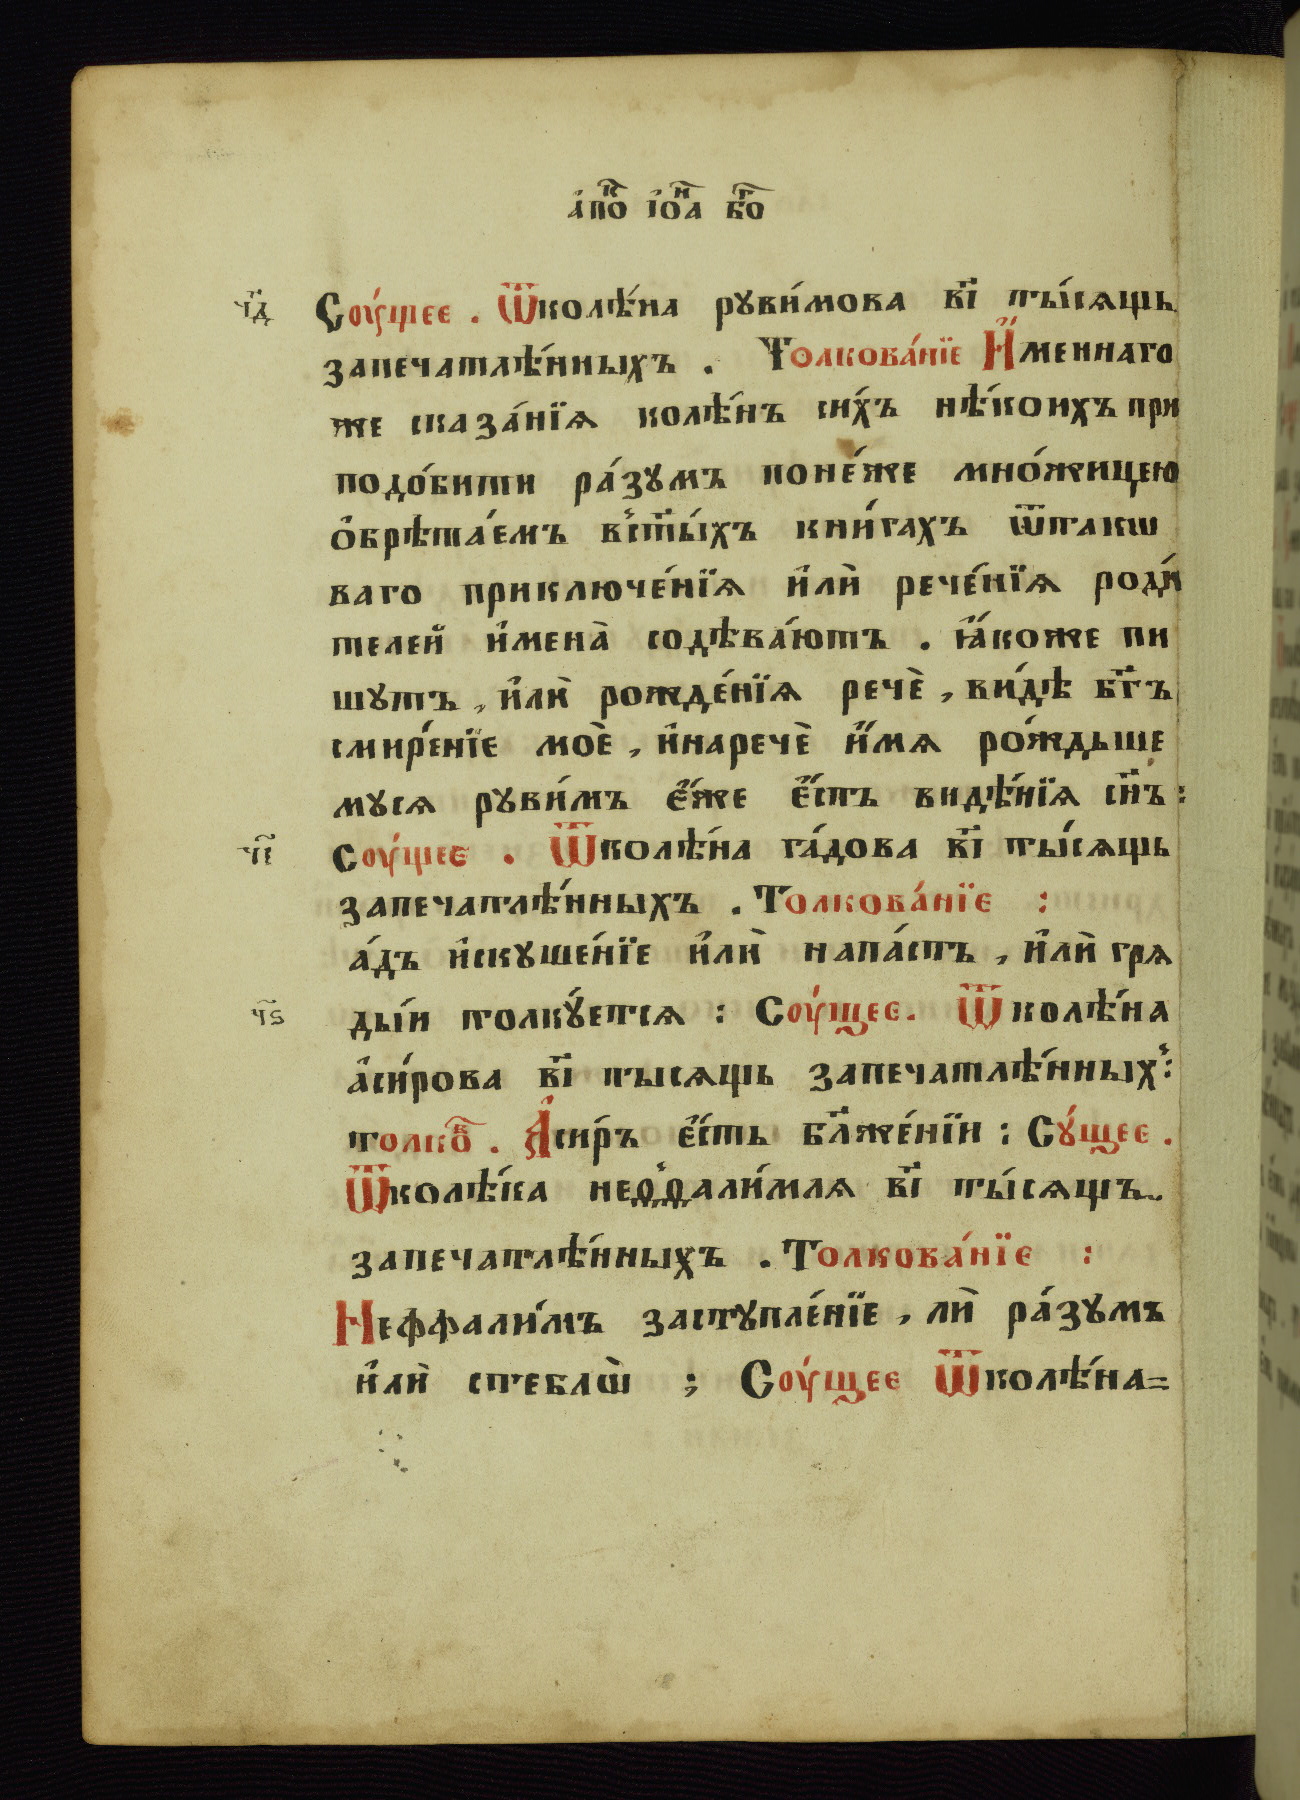 а҆пⷦ҇о і҆ѡⷩ҇а бгⷭ҇о
ч҃д Соу́щее . Ѿколѣ́на руви́мова в҃і ты́сѧщь
запечатлѣ́нныхъ . Толкова́нїе И҆́меннаго
же сказа́нїѧ колѣ́нъ си́хъ нѣ́коихъ при
подо́бити ра́зумъ поне́же мно́жицею
ѻ҆брѣта́емъ в̾ст҃ы́хъ кни́гахъ ѿтакѡ
ваго приключе́нїѧ и҆лѝ рече́нїѧ роди́
телей и҆менà содѣва́ютъ . ꙗ҆́коже пи
шутъ , и҆лѝ рожде́нїѧ речѐ , ви́дѣ бг҃ъ
смире́нїе моѐ , и҆наречѐ и҆́мѧ ро́ждьше
мусѧ руви́мъ є҆́же є҆́сть видѣ́нїѧ сн҃ъ :
ч҃е Соу́щее . Ѿколѣ́на га́дова в҃і ты́сѧщь
запечатлѣ́нныхъ . Толкова́нїе :
а́дъ и҆скуше́нїе и҆лѝ напа́сть , и҆лѝ грѧ
ч҃ѕ ды́и толку́етсѧ : Соу́щее . Ѿколѣ́на
а҆си́рова в҃і тысѧщь запечатлѣ́нных̾ :
толкоⷡ҇ . А҆си́ръ є҆́сть бл҃же́нїи : Су́щее .
Ѿколѣ́ка неѳ̾ѳали́млѧ в҃і ты́сѧщъ
запечатлѣ́нныхъ . Толкова́нїе :
Неффали́мъ заступле́нїе , лѝ ра́зумъ
и҆лѝ стеблѡ̀ ; Соу́щее Ѿколѣ́на=